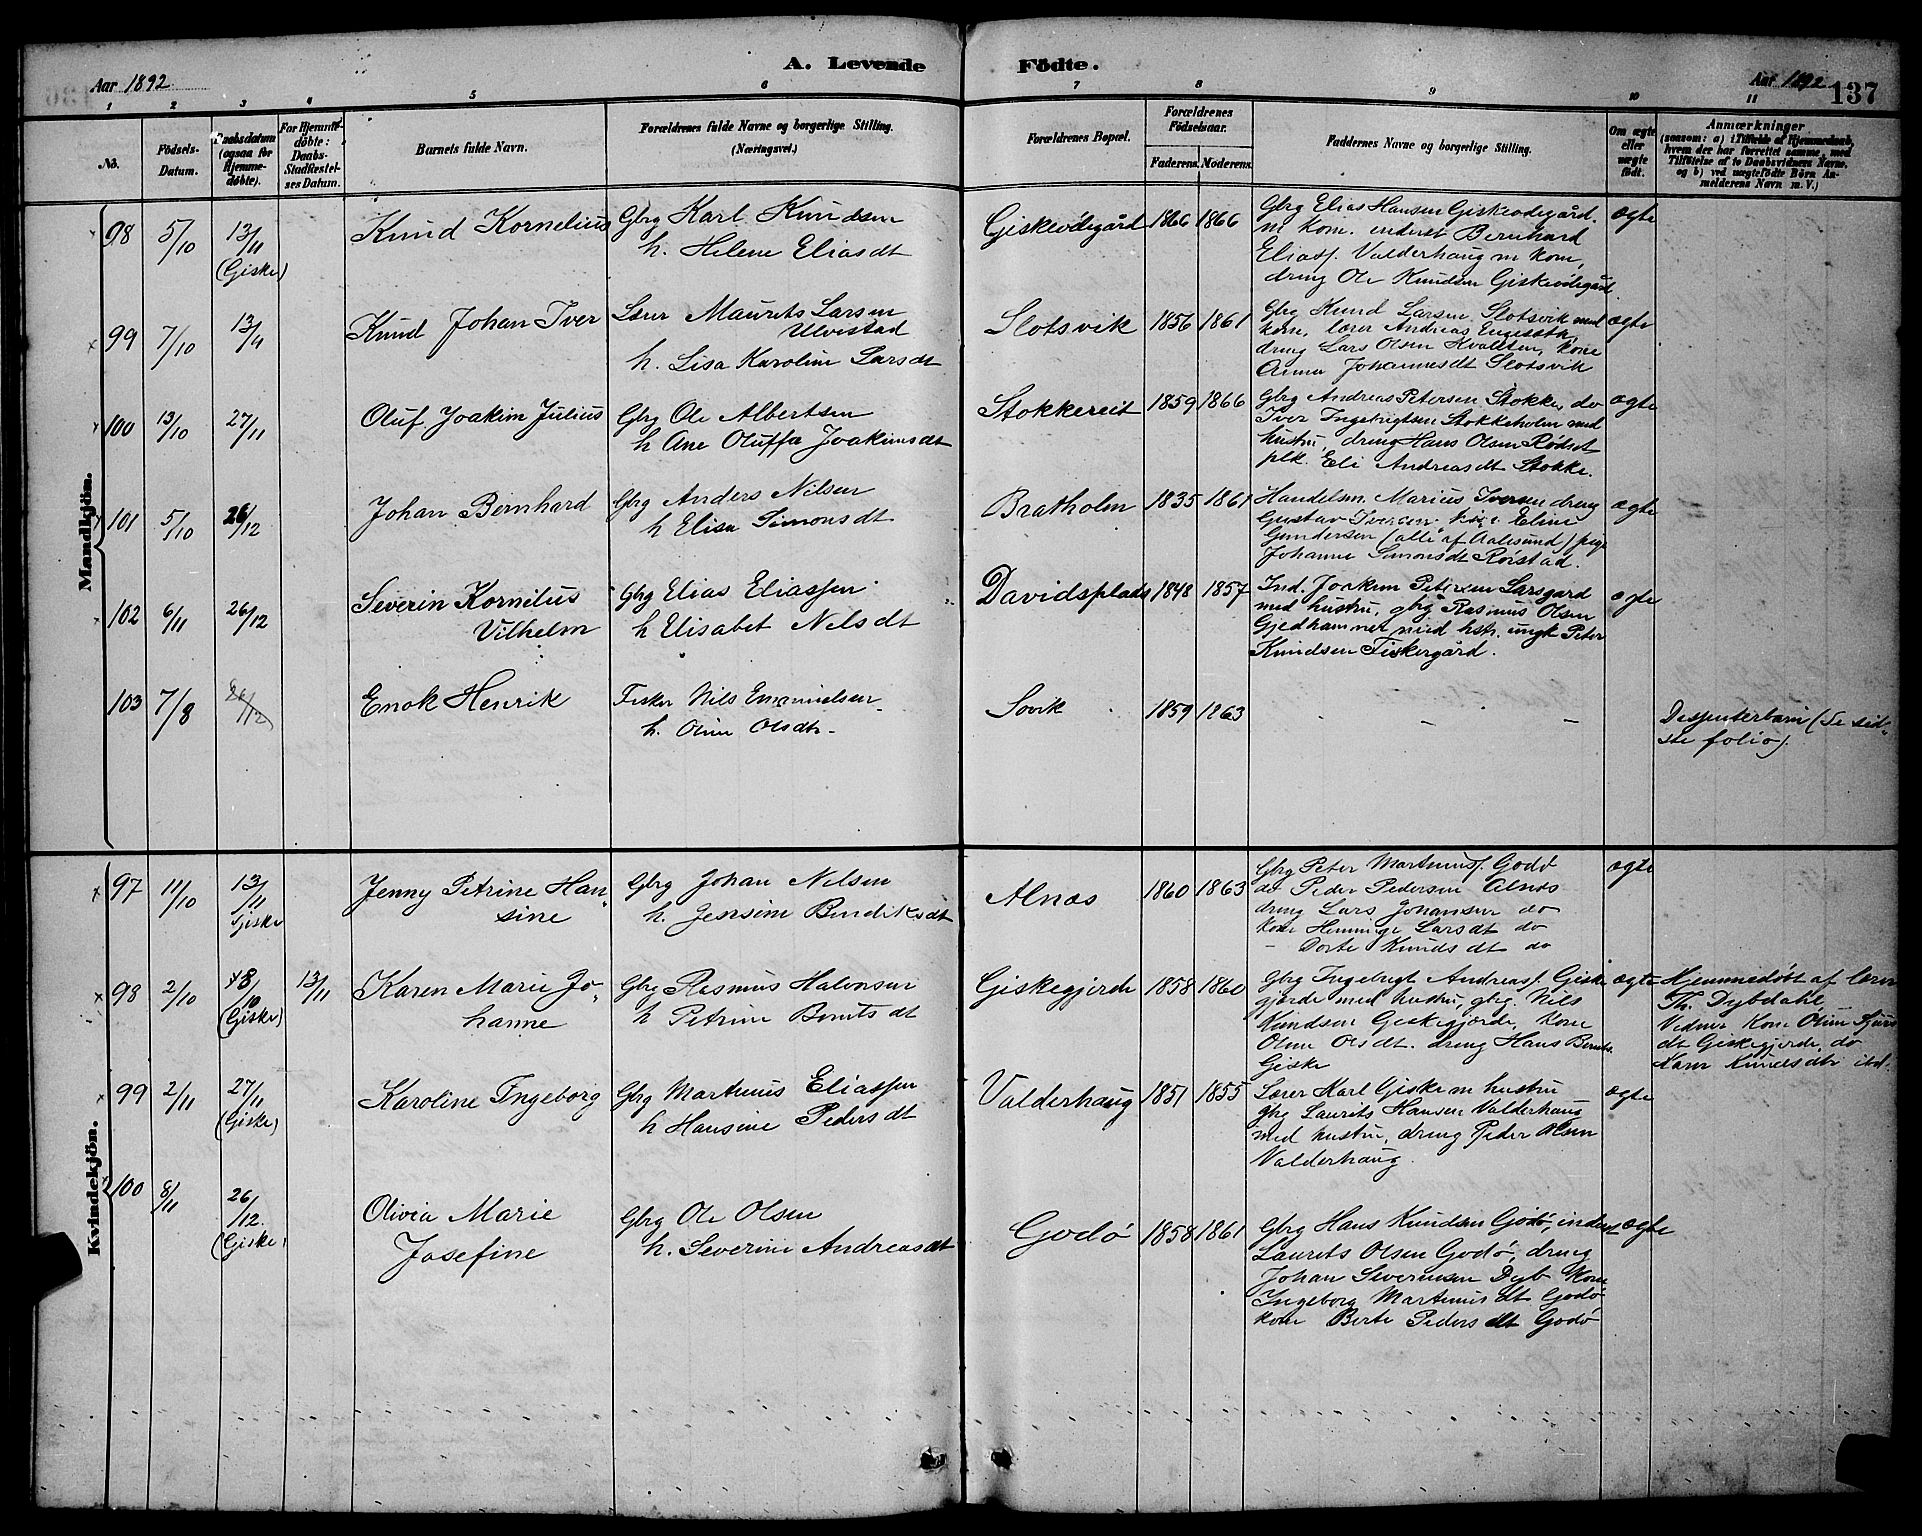 A. Levende Födte.
Aar 1892
Aar 1892
137
1 2 3 4 5 6 7 8 9 10 11
No.
Födsels-Datum.
Daabsdatum (ogsaa for Hjemmedöbte).
For Hjemmedöbte: Daabs-Stadfæstelses Datum.
Barnets fulde Navn.
Forældrenes fulde Navne og borgerlige Stilling. (Næringsvei.)
Forældrenes Bopæl.
Forældrenes Födselsaar.
Faderens. Moderens.
Faddernes Navne og borgerlige Stilling.
Om ægte eller uægte födt.
Anmærkninger
(saasom: a) i Tilfælde af Hjemmedaab, hvem der har forrettet samme, med Tilföielse af to Daabsvidners Navne, og b) ved uægtefödte Börn Anmelderens Navn m. V.)
Mandkjön.
98 5/10 13/11 (Giske) Knud Kornelius Gbrg Karl Knudsen
h. Helene Eliasdt
Giskeødegård 1866 1866 Gbrg Elias Hansen Giskeødegård ægte
m kone. inderst Bernhard
Eliass. Valderhaug m kone,
dreng Ole Knudsen Giskeødegård.
99 7/10 13/11 Knud Johan Iver Lærer Maurits Larsen
Ulvestad
h. Lisa Karoline Larsdt
Slotsvik 1856 1861 Gbrg Knud Larsen Slotsvik med ægte
kone, lærer Andreas Engeseth,
dreng Lars Olsen Kvalsten, kone
Anne Johannesdt Slotsvik
100 13/10 27/11 Oluf Joakim Julius Gbrg Ole Albertsen
h Ane Oluffa Joakimsdt
Stokkereit 1859 1866 Gbrg Andreas Petersen Stokke, do ægte
Iver Ingebrigtsen Stokkeholm med
hustru, dreng Hans Olsen Rødset
plk. Eli Andreasdt Stokke.
101 5/10 26/12 Johan Bernhard Gbrg Anders Nilsen
h Elisa Simonsdt
Bratholm 1835 1861 Handelsm. Marius Iversen dreng ægte
Gustav Iversen, pige Eline
Gundersen (alle af Aalesund) pige
Johanne Simonsdt Rørstad.
102 6/11 26/12 Severin Kornelius
Vilhelm
Gbrg Elias Eliassen
h Elisabet Nilsdt
Davidsplads 1848 1857 Ind. Joakim Petersen Larsgard ægte
med hustru, gbrg Rasmus Olsen
Gjedhammer med hstr. ungk Peter
Knudsen Fiskergård.
103 7/8 26/12 Enok Henrik Fisker Nils Emanuelsen
h. Oline Olsdtr.
Søvik 1859 1863 – – – Dissenterbarn (Se sid-
ste folio).
Kvindekjön.
97 11/10 13/11 Giske Jenny Petrine Han-
sine
Gbrg Johan Nilsen
h. Jensine Bendiksdt
Alnæs 1860 1863 Gbrg Peter Martinuss. Godø ægte
do Peder Pedersen Alnæs
dreng Lars Johansen do
kone Henninge Larsdt do
– Dorte Knudsdt do
98 2/10 8/10 (Giske) 13/11 Karen Marie Jo-
hanne
Gbrg Rasmus Halvorsen
h Petrine Berntsdt
Giskegjerde 1858 1860 Gbrg Ingebrigt Andreass. Giske ægte
gjerde med hustru, gbrg. Nils
Knudsen Giskegjerde, kone
Oline Olsdt. dreng Hans Bernts.
Giske
Hjemmedøbt af lærer
Th. Dybdahl
Vidner Kone Oline Sjurs
dt Giskegjerde, do
Karen Knudsdtr ibd.
99 2/11 27/11 (Giske) Karoline Ingeborg Gbrg Martinus Eliassen
h Hansine Pedersdt
Valderhaug 1851 1855 Lærer Karl Giske m hustru ægte
gbrg Laurits Hansen Valderhaug
med hustru, dreng Peder Olsen
Valderhaug
100 8/11 26/12. (Giske) Olivia Marie
Josefine
Gbrg Ole Olsen
h. Severine Andreasdt
Godø 1858 1861 Gbrg Hans Knudsen Godø, inderst ægte
Laurits Olsen Godø, dreng
Johan Severinsen Dyb kone
Ingeborg Martinusdt Godø
kone Berte Pedersdt Godø